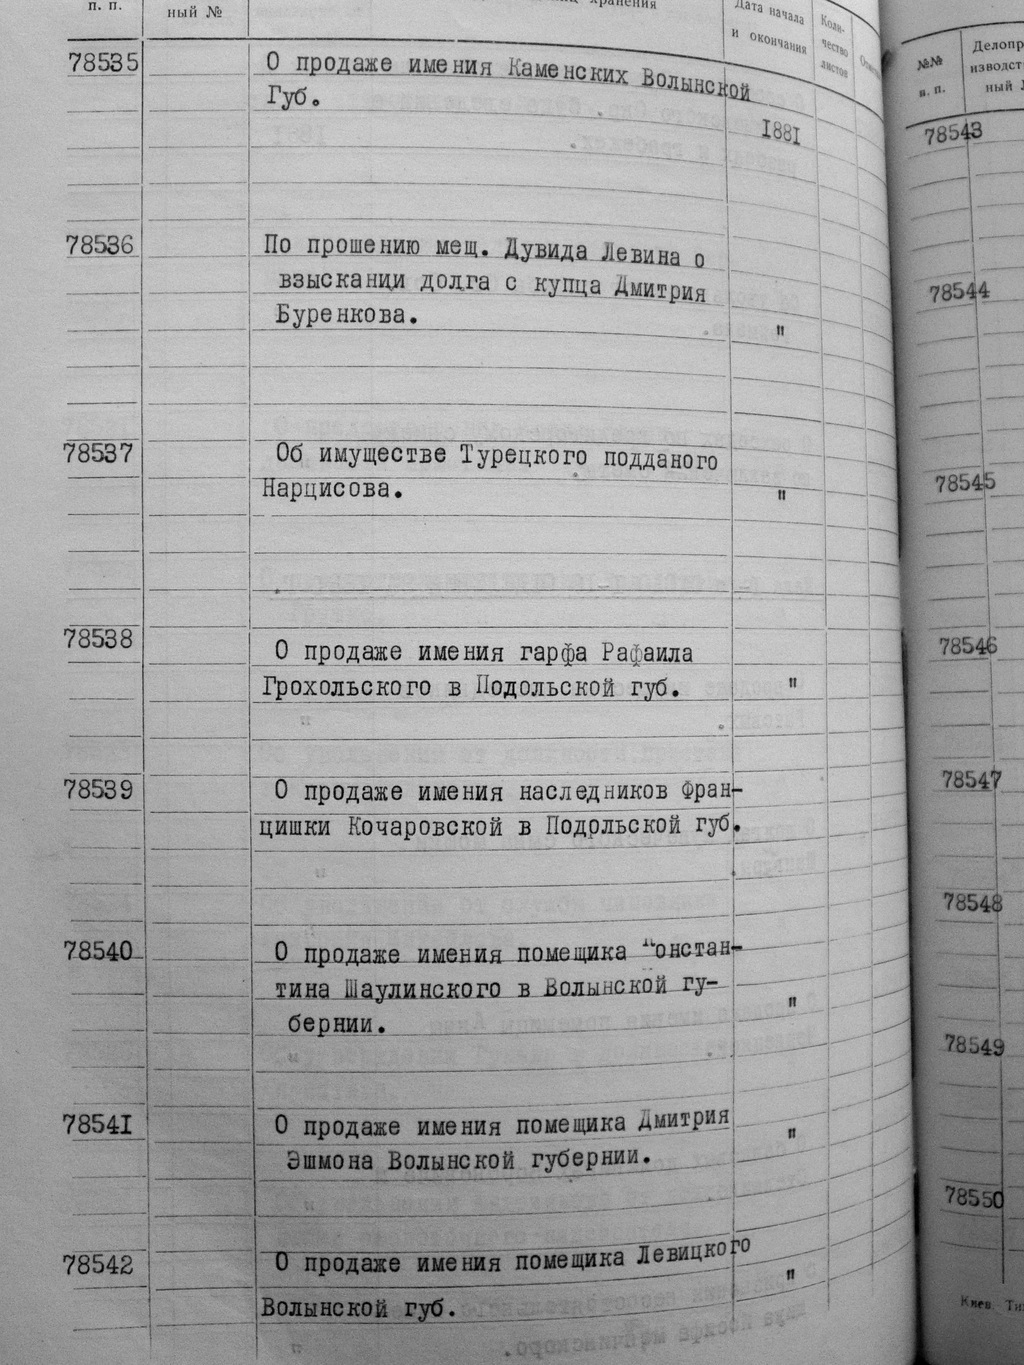 п. п.
ный №
хранения
Дата начала
и окончания
Коли-
чество
листов
78535
О продаже имения Каменских Волынской
Губ.
1881
78536
По прошению мещ. Дувида Левина о
взыскании долга с купца Дмитрия
Буренкова.
"
78537
Об имуществе Турецкого подданого
Нарцисова.
"
78538
О продаже имения гарфа Рафаила
Грохольского в Подольской губ.
"
78539
О продаже имения наследников Фран-
цишки Кочаровской в Подольской губ.
78540
О продаже имения помещика Констан-
тина Шаулинского в Волынской гу-
бернии.
"
78541
О продаже имения помещика Дмитрия
Эшмона Волынской губернии.
"
78542
О продаже имения помещика Левицкого
Волынской губ.
"
№№
п. п.
Делопр
изводст
ный
78543
78544
78545
78546
78547
78548
78549
78550
Киев. Ти